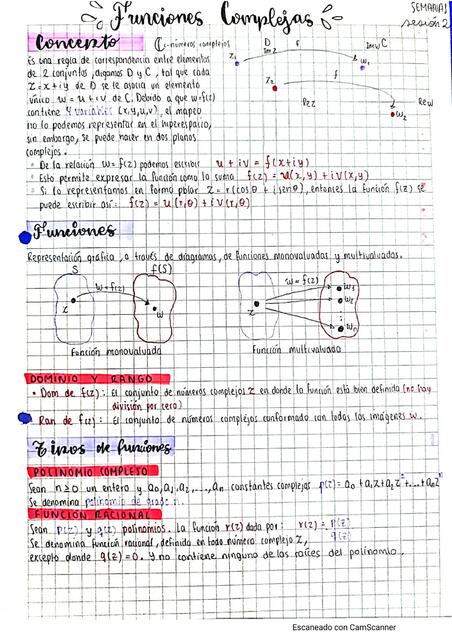 Funciones Complejas
SEMANA 1
sesión 2
Concepto
C: números complejos
D
Im z
f
Im w C
z₁
w₁
z₂
f
w₂
Re z
Re w
Es una regla de correspondencia entre elementos
de 2 conjuntos, digamos D y C, tal que cada
z=x+iy de D se le asocia un elemento
único w = u+iv de C. Debido a que w=f(z)
contiene 4 variables (x,y,u,v), el mapeo
no lo podemos representar en el hiperespacio,
sin embargo, se puede hacer en dos planos
complejos.
• De la relación w=f(z) podemos escribir u+iv = f(x+iy)
• Esto permite expresar la función como la suma f(z) = u(x,y) + iv(x,y)
• Si lo representamos en forma polar z = r(cosθ + i senθ), entonces la función f(z) se
puede escribir así: f(z) = u(r,θ) + iv(r,θ)
Funciones
Representación gráfica, a través de diagramas, de funciones monovaluadas y multivaluadas.
S
f(S)
w=f(z)
z
w
Función monovaluada
w=f(z)
z
w₁
w₂
⋮
wₙ
Función multivaluada
DOMINIO Y RANGO
• Dom de f(z): El conjunto de números complejos z en donde la función está bien definida (no hay
división por cero)
Ran de f(z): El conjunto de números complejos conformado con todas las imágenes w.
Tipos de funciones
POLINOMIO COMPLETO
Sean n≥0 un entero y a₀,a₁,a₂,...,aₙ constantes complejas p(z) = a₀+a₁z+a₂z²+...+aₙzⁿ
Se denomina polinomio de grado n.
FUNCIÓN RACIONAL
Sean p(z) y q(z) polinomios. La función r(z) dada por: r(z) = p(z)/q(z)
Se denomina función racional, definida en todo número complejo z,
excepto donde q(z)=0. Y no contiene ninguno de las raíces del polinomio.
Escaneado con CamScanner